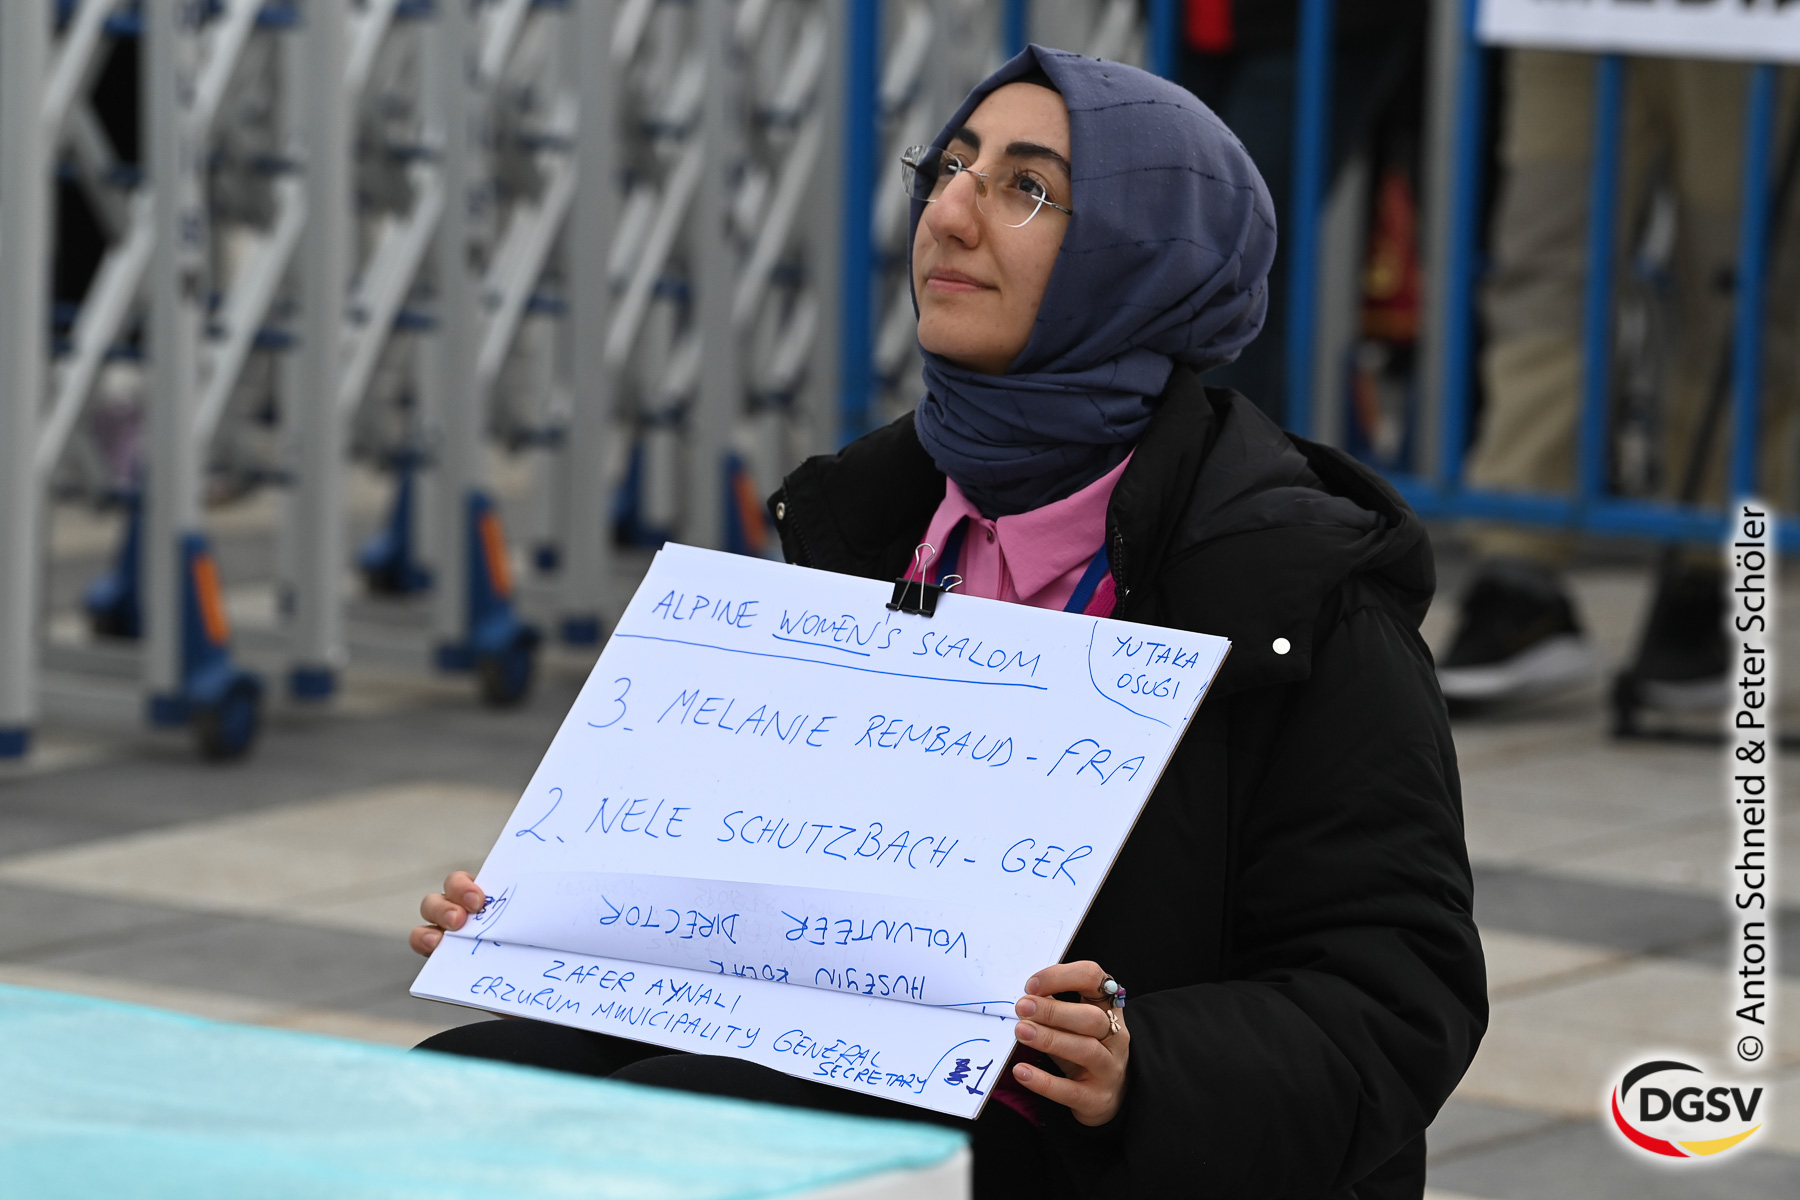 ALPINE WOMEN'S SLALOM
YUTAKA
OSUGI
3. MELANIE REMBAUD - FRA
2. NELE SCHUTZBACH - GER
VOLUNTEER DIRECTOR
HUSEYIN KOCAK
ZAFER AYNALI
ERZURUM MUNICIPALITY GENERAL
SECRETARY
1
© Anton Schneid & Peter Schöler
DGSV